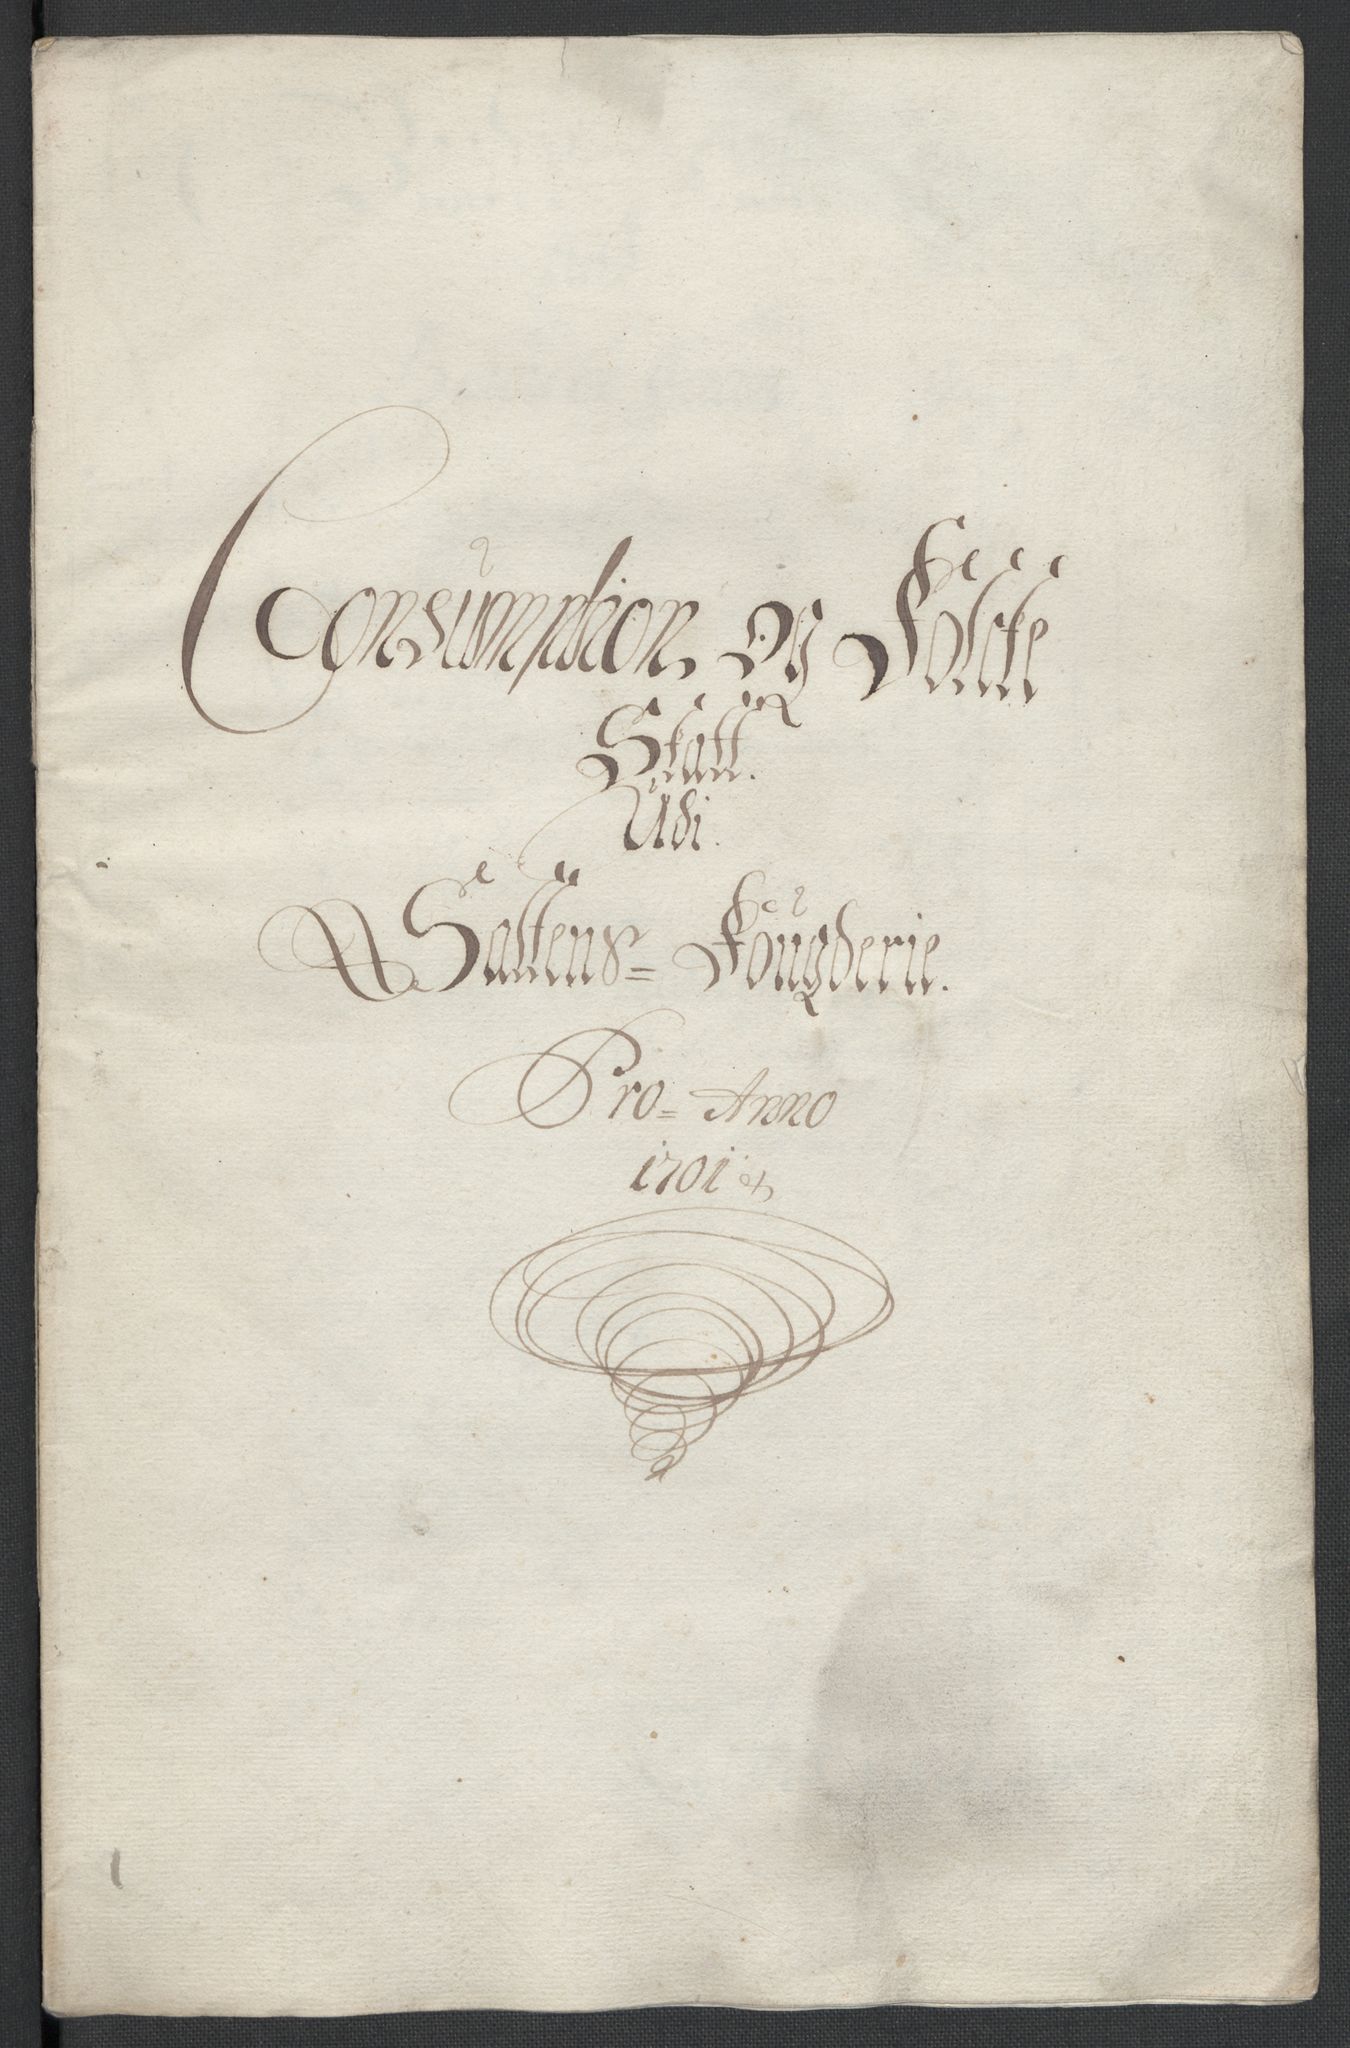 Consumption og Folcke
Skatt.
Udi
Saltens= Fougderie.
Pro= Anno
1701